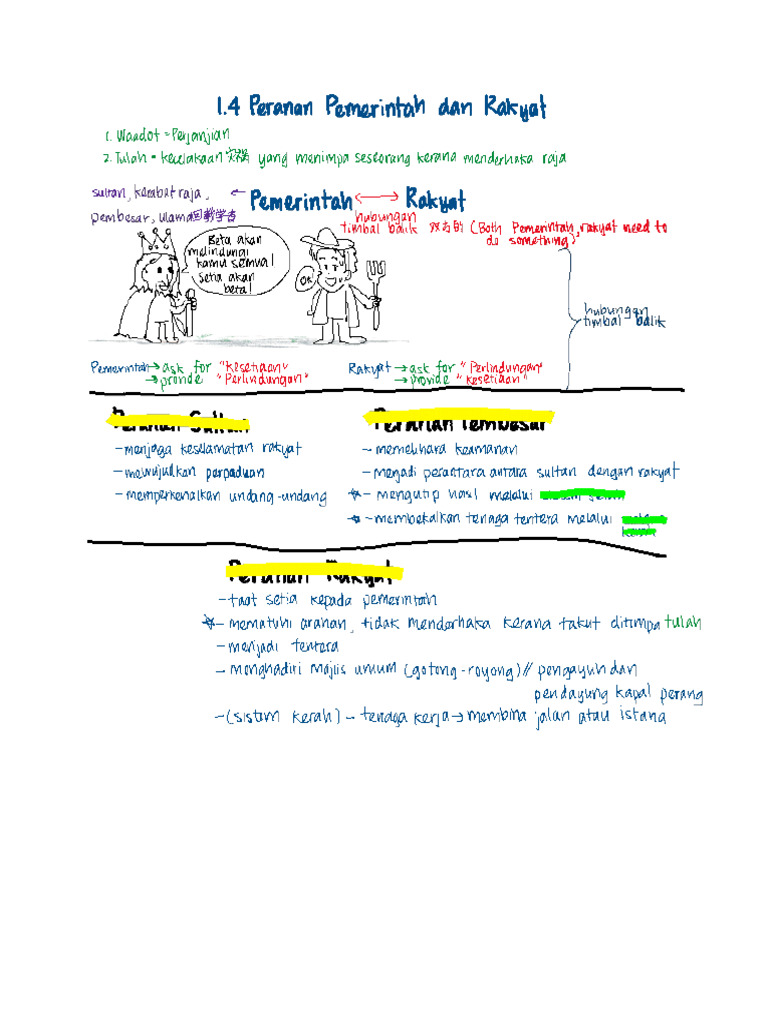 1.4 Peranan Pemerintah dan Rakyat
1. Waadat = Perjanjian
2. Tulah = kecelakaan 灾祸 yang menimpa seseorang kerana menderhaka raja
sultan, kerabat raja, ← Pemerintah ←→ Rakyat
pembesar, ulama 回教学者
hubungan
timbal balik 双方的 (Both Pemerintah, rakyat need to
do something)
Beta akan
melindungi
kamu semua!
Setia akan
beta!
OK!
hubungan
timbal balik
Pemerintah → ask for "Kesetiaan"
→ provide "Perlindungan"
Rakyat → ask for "Perlindungan"
→ provide "kesetiaan"
Peranan Sultan
- menjaga keselamatan rakyat
- mewujudkan perpaduan
- memperkenalkan undang-undang
Peranan Pembesar
- memelihara keamanan
- menjadi perantara antara sultan dengan rakyat
- mengutip hasil melalui
- membekalkan tenaga tentera melalui
kerah
Peranan Rakyat
- taat setia kepada pemerintah
- mematuhi arahan, tidak menderhaka kerana takut ditimpa tulah
- menjadi tentera
- menghadiri majlis umum (gotong-royong) // pengayuh dan
pendayung kapal perang
- (sistem kerah) - tenaga kerja → membina jalan atau istana